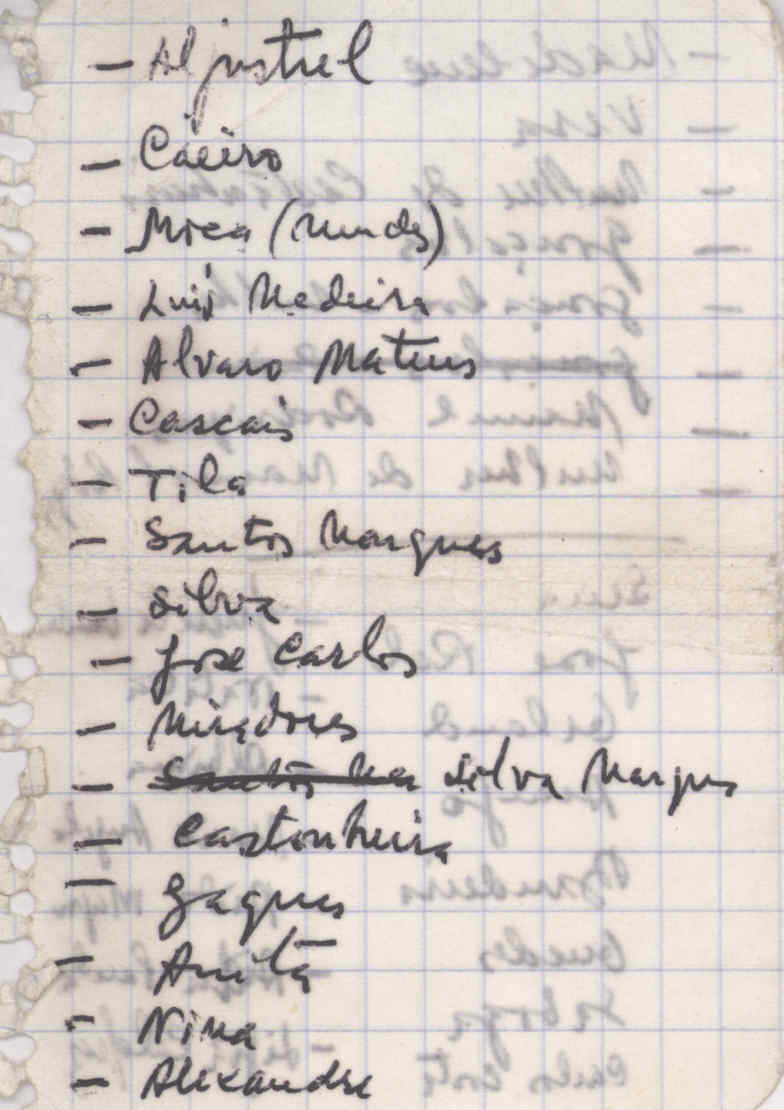 - Aljustrel
- Caeiro
- Mica (Mendes)
- Luís Medeiros
- Alvaro Mateus
- Cascais
- Tila
- Santos Marques
- Silva
- José Carlos
- Miradores
- Santos Mar Silva Marques
- Castanheira
- Gagues
- Anita
- Nina
- Alexandre